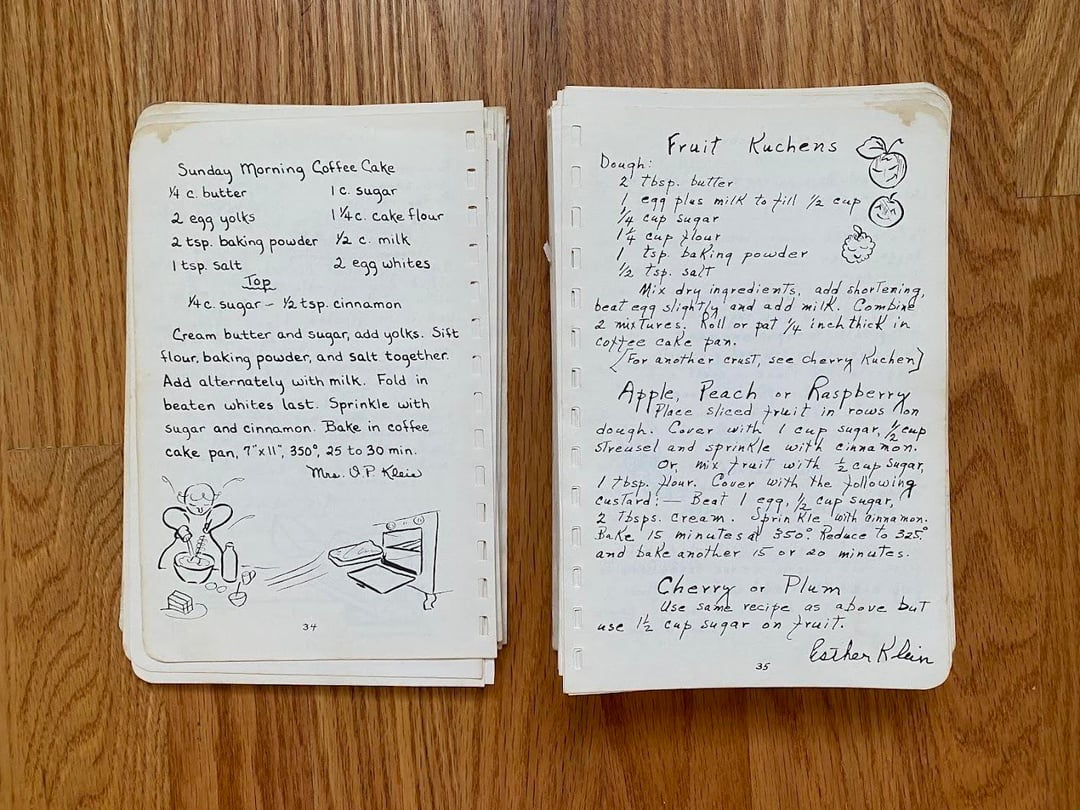 Sunday Morning Coffee Cake
1/4 c. butter 1 c. sugar
2 egg yolks 1 1/4 c. cake flour
2 tsp. baking powder 1/2 c. milk
1 tsp. salt 2 egg whites
Top
1/4 c. sugar - 1/2 tsp. cinnamon
Cream butter and sugar, add yolks. Sift
flour, baking powder, and salt together.
Add alternately with milk. Fold in
beaten whites last. Sprinkle with
sugar and cinnamon. Bake in coffee
cake pan, 7"x11", 350°, 25 to 30 min.
Mrs. O.P. Klein
34
Fruit Kuchens
Dough:
2 tbsp. butter
1 egg plus milk to fill 1/2 cup
1/4 cup sugar
1 1/4 cup flour
1 tsp. baking powder
1/2 tsp. salt
Mix dry ingredients, add shortening,
beat egg slightly and add milk. Combine
2 mixtures. Roll or pat 1/4 inch thick in
coffee cake pan.
[For another crust, see Cherry Kuchen]
Apple, Peach or Raspberry
Place sliced fruit in rows on
dough. Cover with 1 cup sugar, 1/2 cup
streusel and sprinkle with cinnamon.
Or, mix fruit with 1/2 cup sugar,
1 tbsp. flour. Cover with the following
custard: — Beat 1 egg, 1/2 cup sugar,
2 tbsps. cream. Sprinkle with cinnamon.
Bake 15 minutes at 350°. Reduce to 325°
and bake another 15 or 20 minutes.
Cherry or Plum
Use same recipe as above but
use 1 1/2 cup sugar on fruit.
Esther Klein
35